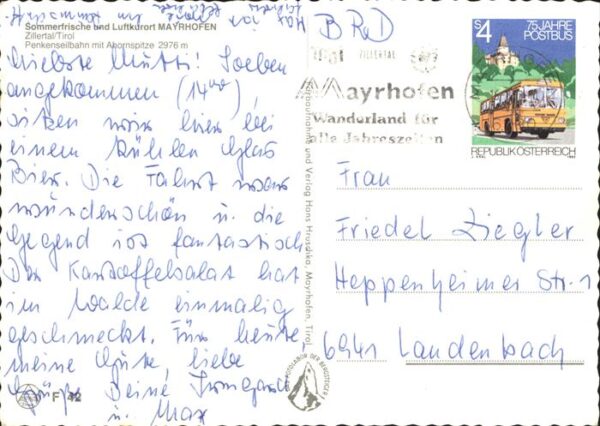 Sommerfrische und Luftkurort MAYRHOFEN
Zillertal/Tirol
Penkenseilbahn mit Ahornspitze 2976 m
Liebste Mutti! Soeben
angekommen (14⁰⁰),
sitzen wir hier bei
einem kühlen Glas
Bier. Die Fahrt war
wunderschön u. die
Gegend ist fantastisch
Der Kartoffelsalat hat
im Walde einmalig
geschmeckt. Für heute
meine Gute, liebe
Grüße Deine Irmgard
u. Max
F 42
Verlag Hans Hruschka, Mayrhofen, Tirol
BRD
ZILLERTAL
Mayrhofen
Wanderland für
alle Jahreszeiten
S 4
75 JAHRE
POSTBUS
REPUBLIK ÖSTERREICH
Frau
Friedel Ziegler
Heppenheimer Str. 1
6941 Laudenbach